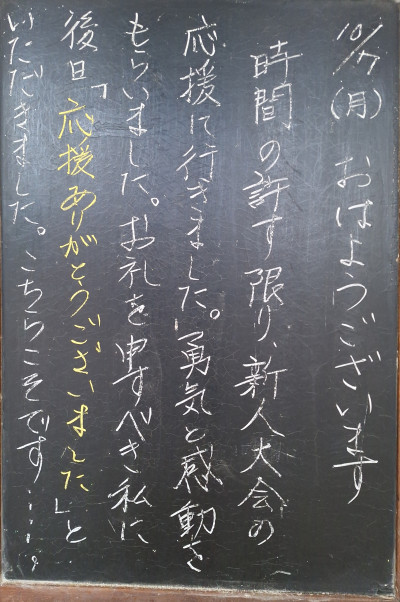 10/7(月) おはようございます
時間の許す限り、新人大会の
応援に行きました。勇気と感動を
もらいました。お礼を申すべき私に
後日「応援ありがとうございました」と
いただきました。こちらこそです……。